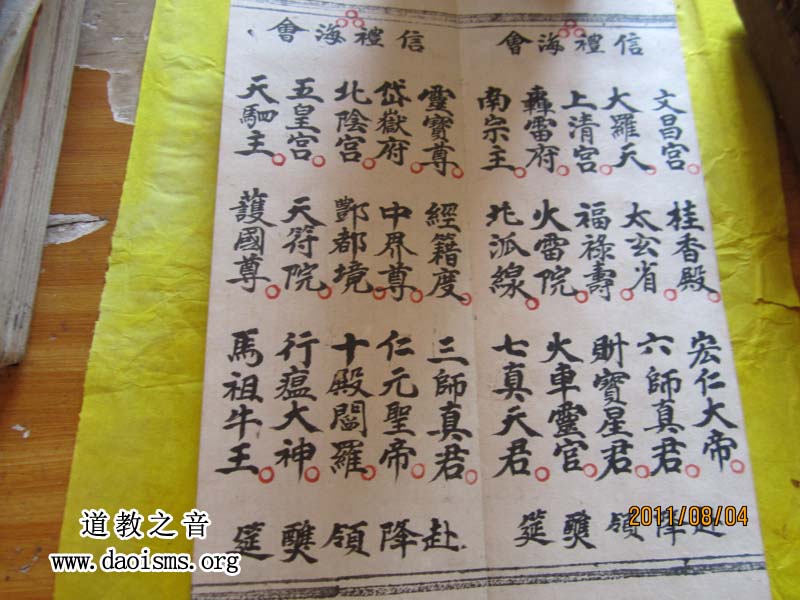 信禮海會
文昌宮 桂香殿 宏仁大帝
大羅天 太玄省 六師真君
上清宮 福祿壽 財寶星君
轟雷府 火雷院 火車靈官
南宗主 北派線 七真天君
赴降領醮筵
信禮海會
靈寶尊 經籍度 三師真君
岱嶽府 中界尊 仁元聖帝
北陰宮 酆都境 十殿閻羅
五皇宮 天符院 行瘟大神
天駟主 護國尊 馬祖牛王
赴降領醮筵
2011/08/04
道教之音
www.daoisms.org